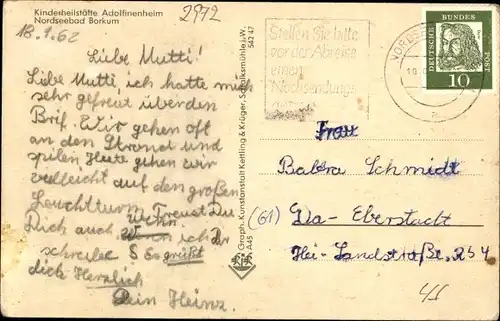 Kinderheilstätte Adolfinenheim
Nordseebad Borkum
18.1.62
2972
Liebe Mutti!
Liebe Mutti, ich hatte mich
sehr gefreut über den
Brif. Wir gehen oft
an den Strand und
spilen Heute gehen wir
vielleicht auf den großen
Leuchtturm Freust Du
Dich auch wenn ich Dir
schreibe S Es grüßt
dich Herzlich
Dein Heinz.
Graph. Kunstanstalt Kettling & Krüger, Schalksmühle i. W.
542 47
A45
Stellen Sie bitte
vor der Abreise
einen
Nachsendungs
NORDS
DEUTSCHE BUNDES POST
10
Frau
Babbra Schmidt
(61) Da-Eberstadt
Hei-Landstraße 254